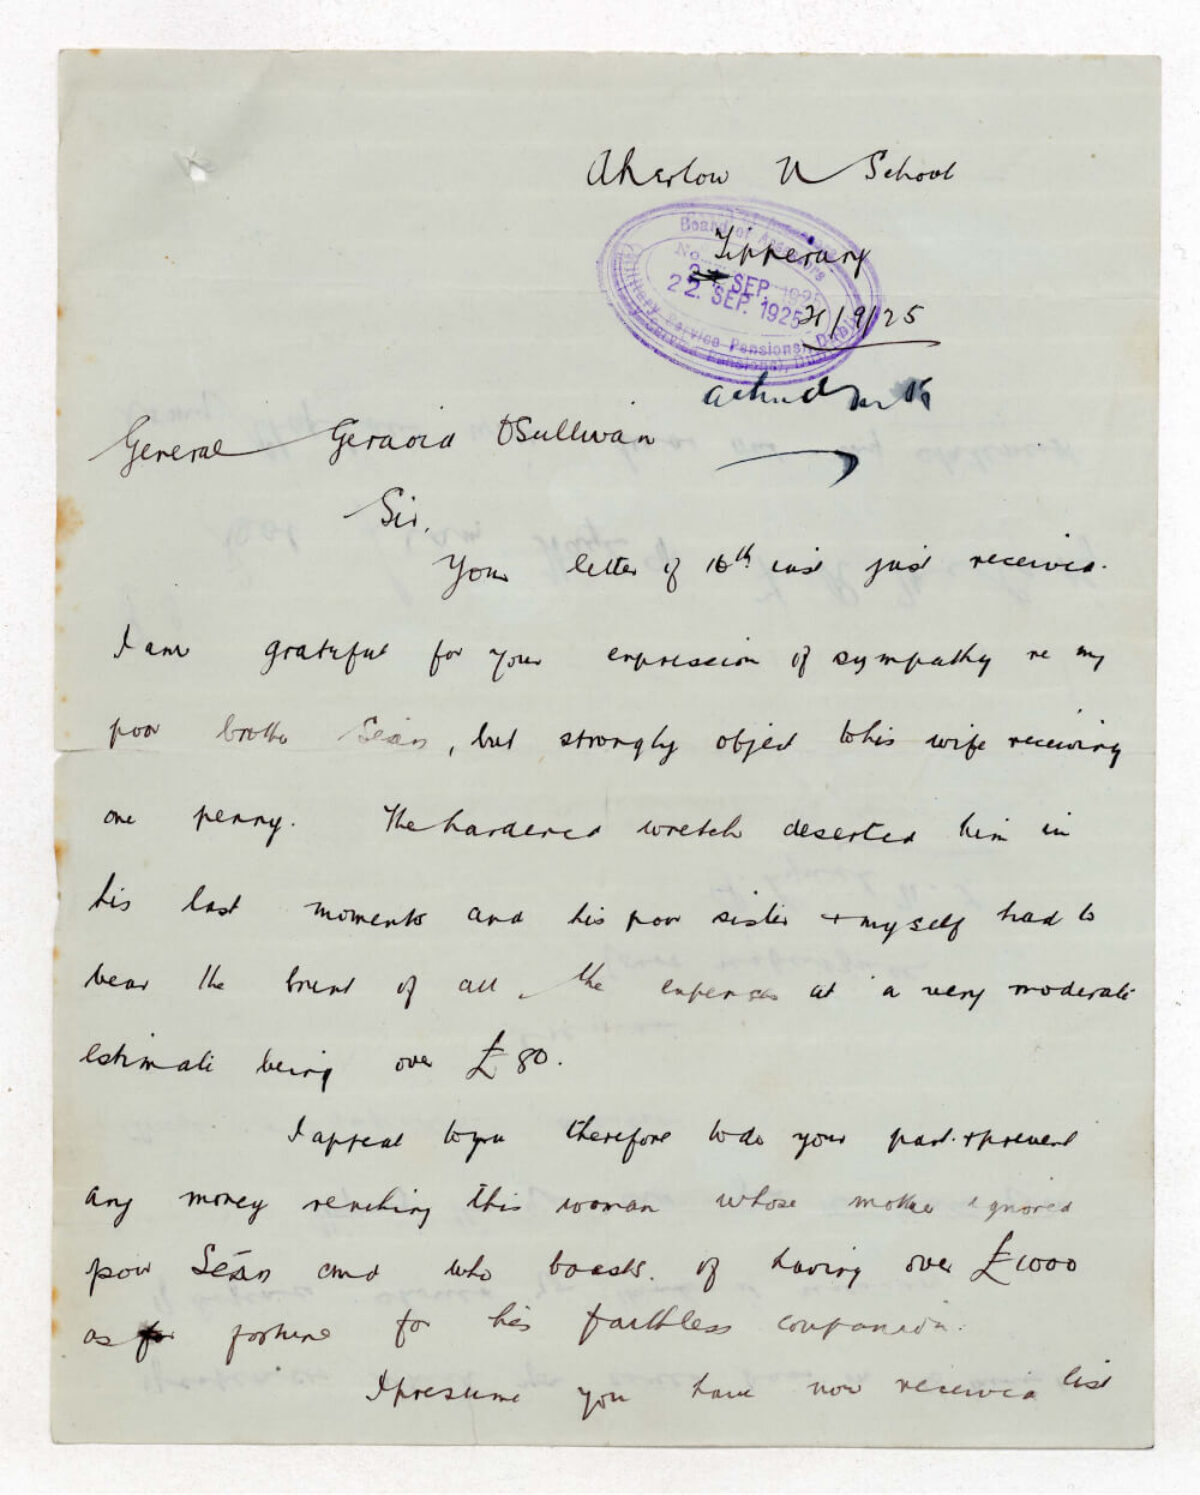 Aherlow N School
Tipperary
Board of Assessors
No.
SEP. 1925
22. SEP. 1925
Military Service Pensions, Dublin
21/9/25
General Gearoid O'Sullivan
Sir,
Your letter of 16th inst just received.
I am grateful for your expression of sympathy re my
poor brother Seán, but strongly object to his wife receiving
one penny. The hardened wretch deserted him in
his last moments and his poor sister + myself had to
bear the brunt of all, the expenses at a very moderate
estimate being over £80.
I appeal to you therefore to do your part + prevent
any money reaching this woman whose mother ignored
poor Seán and who boasts of having over £1000
as fortune for his faithless companion.
I presume you have now received list